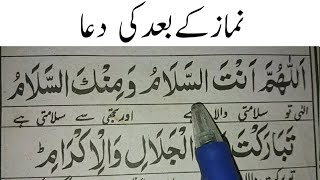 نماز کے بعد کی دعا
اَللّٰهُمَّ اَنْتَ السَّلَامُ وَمِنْكَ السَّلَامُ
الٰہی تو سلامتی والا ہے اور تجھی سے سلامتی ہے
تَبَارَكْتَ الْجَلَالِ وَالْاِكْرَامِ